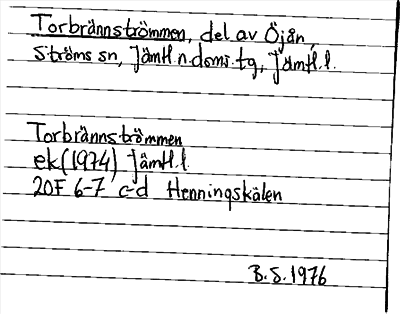 Torbrännströmmen, del av Öjån,
Ströms sn, Jämtl.n.doms.tg, Jämtl.l.
Torbrännströmmen
ek(1974) Jämtl.l.
20F 6-7 c-d Henningskälen
B.S.1976